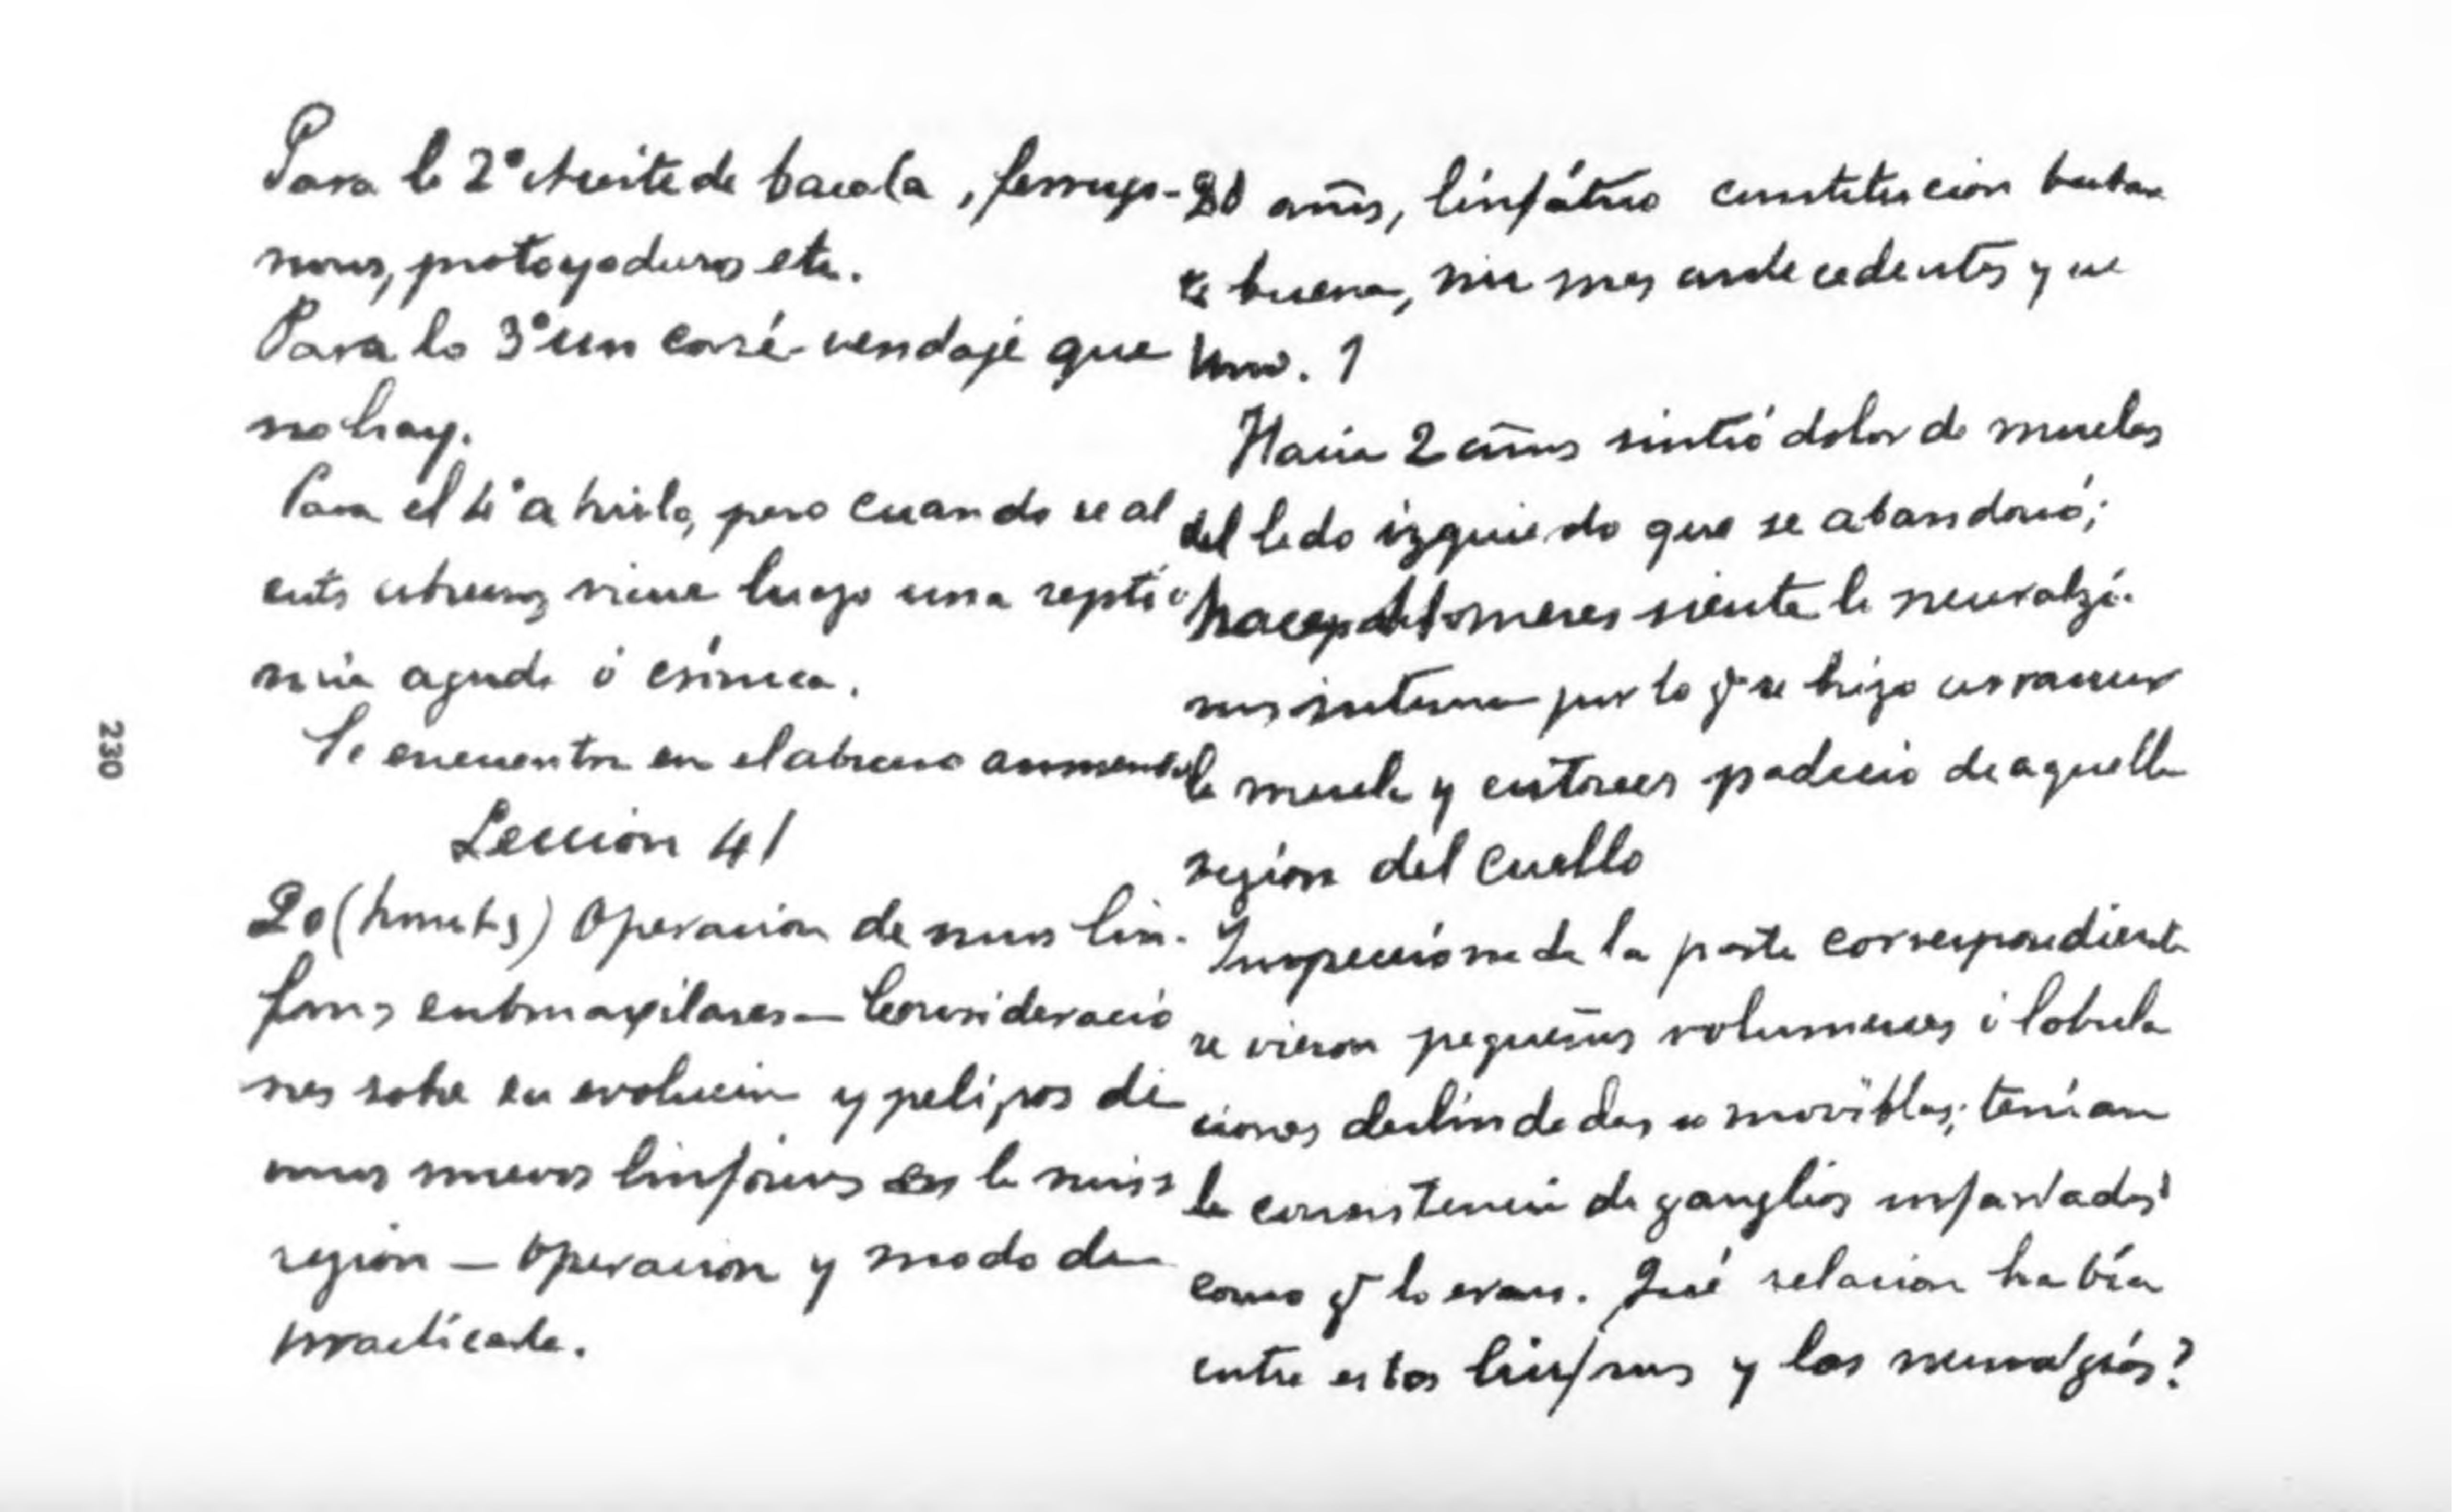 Para lo 2º Aceite de bacala, ferrugi-
nosos, protoyoduros etc.
Para lo 3º un corsé-vendaje que
no hay.
Para el 4º abrirlo, pero cuando se al
 viene luego una septi
mia aguda ó crónica.
Se encuentra en el absceso
Leccion 41
20 (martes) Operacion de unos lin-
fomas submaxilares — Consideracio
nes sobre su evolucion y peligros de
unos nuevos linfomas en la misma
region — Operacion y modo de
practicarla.
20 años, linfático constitucion bastan
te buena, sin mas antecedentes y se
Hacia 2 años sintió dolor de muelas
del lado izquierdo que se abandonó;
hace meses siente la neuralgia
mas intensa por lo q. se hizo arrancar
la muela y entonces padeció de aquella
región del cuello
Inspeccionada la parte correspondiente
se vieron pequeños volumenes ó lobula
ciones deslindadas movibles; tenían
la consistencia de ganglios infartados
como q. lo eran. Qué relacion había
entre estos linfomas y las neuralgias?
230